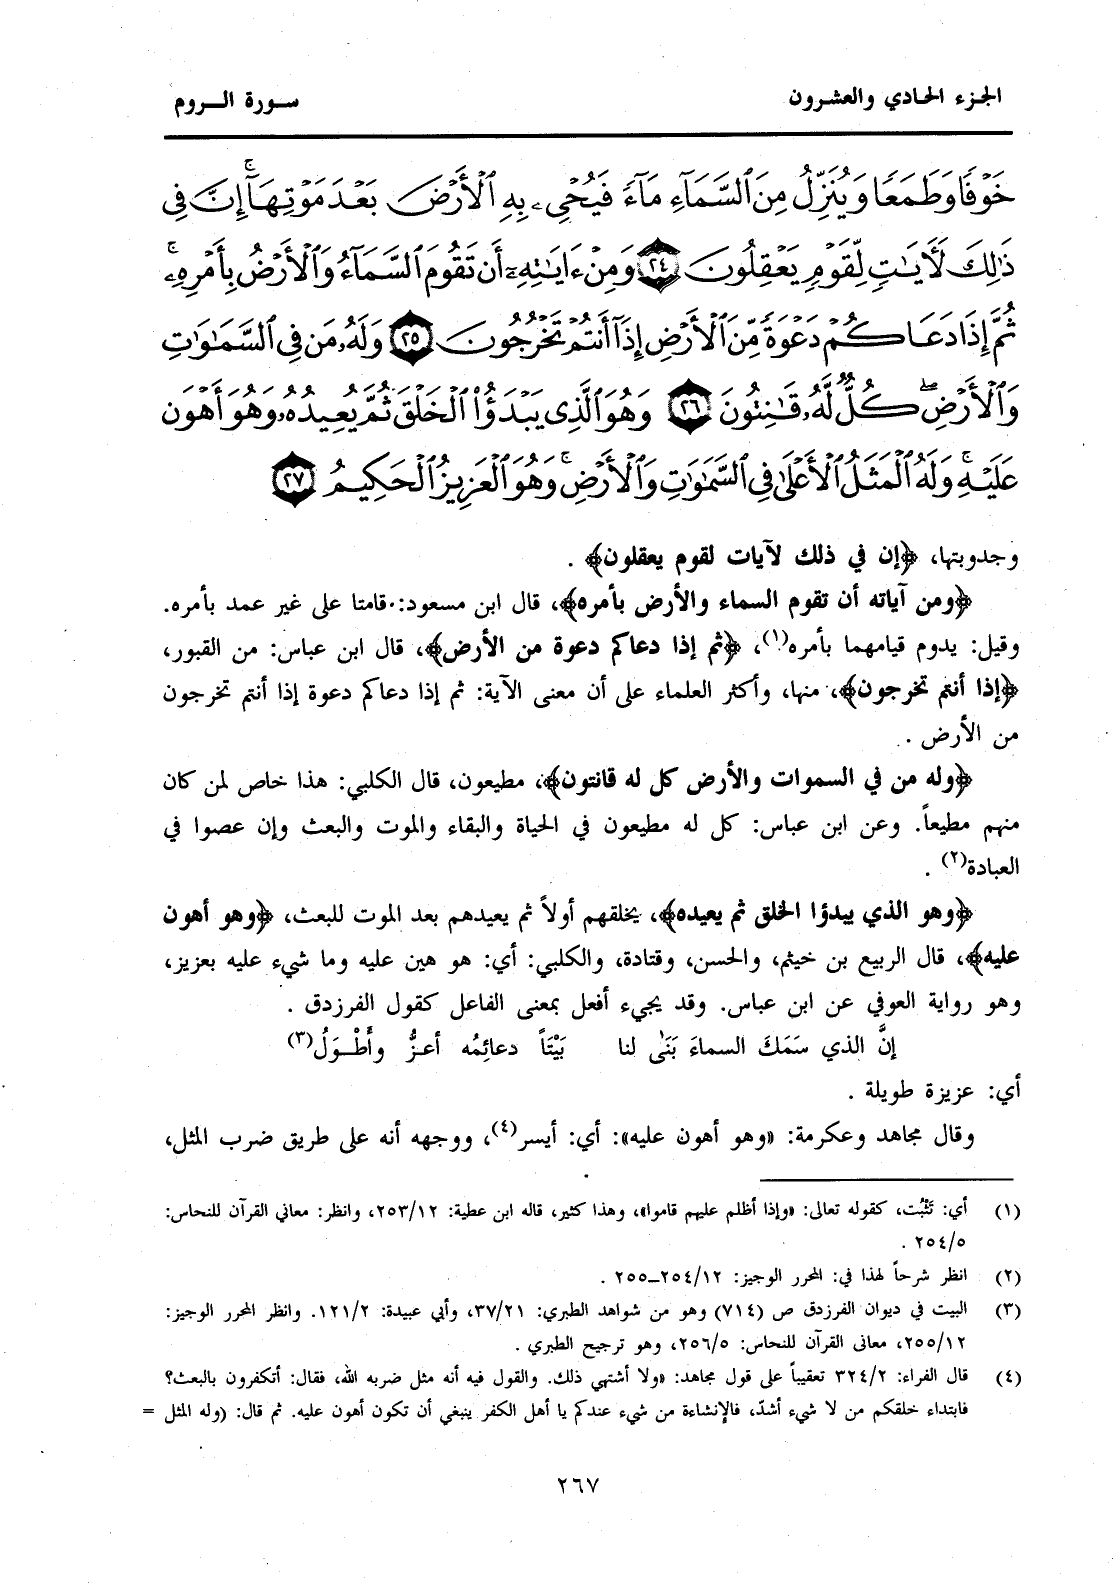 الجزء الحادي والعشرون
سورة الروم
خَوْفًا وَطَمَعًا وَيُنَزِّلُ مِنَ ٱلسَّمَآءِ مَآءً فَيُحْىِۦ بِهِ ٱلْأَرْضَ بَعْدَ مَوْتِهَآ ۚ إِنَّ فِى
ذَٰلِكَ لَأٓيَٰتٍ لِّقَوْمٍ يَعْقِلُونَ ٢٤ وَمِنْ ءَايَٰتِهِۦٓ أَن تَقُومَ ٱلسَّمَآءُ وَٱلْأَرْضُ بِأَمْرِهِۦ ۚ
ثُمَّ إِذَا دَعَاكُمْ دَعْوَةً مِّنَ ٱلْأَرْضِ إِذَآ أَنتُمْ تَخْرُجُونَ ٢٥ وَلَهُۥ مَن فِى ٱلسَّمَٰوَٰتِ
وَٱلْأَرْضِ ۖ كُلٌّ لَّهُۥ قَٰنِتُونَ ٢٦ وَهُوَ ٱلَّذِى يَبْدَؤُا۟ ٱلْخَلْقَ ثُمَّ يُعِيدُهُۥ وَهُوَ أَهْوَنُ
عَلَيْهِ ۚ وَلَهُ ٱلْمَثَلُ ٱلْأَعْلَىٰ فِى ٱلسَّمَٰوَٰتِ وَٱلْأَرْضِ ۚ وَهُوَ ٱلْعَزِيزُ ٱلْحَكِيمُ ٢٧
وجدوبتها، ﴿إن في ذلك لآيات لقوم يعقلون﴾ .
﴿ومن آياته أن تقوم السماء والأرض بأمره﴾، قال ابن مسعود: قامتا على غير عمد بأمره.
وقيل: يدوم قيامهما بأمره(١)، ﴿ثم إذا دعاكم دعوة من الأرض﴾، قال ابن عباس: من القبور،
﴿إذا أنتم تخرجون﴾، منها، وأكثر العلماء على أن معنى الآية: ثم إذا دعاكم دعوة إذا أنتم تخرجون
من الأرض .
﴿وله من في السموات والأرض كل له قانتون﴾، مطيعون، قال الكلبي: هذا خاص لمن كان
منهم مطيعاً. وعن ابن عباس: كل له مطيعون في الحياة والبقاء والموت والبعث وإن عصوا في
العبادة(٢) .
﴿وهو الذي يبدؤا الخلق ثم يعيده﴾، يخلقهم أولاً ثم يعيدهم بعد الموت للبعث، ﴿وهو أهون
عليه﴾، قال الربيع بن خيثم، والحسن، وقتادة، والكلبي: أي: هو هين عليه وما شيء عليه بعزيز،
وهو رواية العوفي عن ابن عباس. وقد يجيء أفعل بمعنى الفاعل كقول الفرزدق .
إنَّ الذي سَمَكَ السماءَ بَنَىٰ لنا بَيْتَاً دعائِمُه أعزُّ وأَطْوَلُ(٣)
أي: عزيزة طويلة .
وقال مجاهد وعكرمة: «وهو أهون عليه»: أي: أيسر(٤)، ووجهه أنه على طريق ضرب المثل،
(١) أي: تَثْبُت، كقوله تعالى: «وإذا أظلم عليهم قاموا»، وهذا كثير، قاله ابن عطية: ٢٥٣/١٢، وانظر: معاني القرآن للنحاس:
٢٥٤/٥ .
(٢) انظر شرحاً لهذا في: المحرر الوجيز: ٢٥٤/١٢ـ٢٥٥ .
(٣) البيت في ديوان الفرزدق ص (٧١٤) وهو من شواهد الطبري: ٣٧/٢١، وأبي عبيدة: ١٢١/٢. وانظر المحرر الوجيز:
٢٥٥/١٢، معانى القرآن للنحاس: ٢٥٦/٥، وهو ترجيح الطبري .
(٤) قال الفراء: ٣٢٤/٢ تعقيباً على قول مجاهد: «ولا أشتهي ذلك. والقول فيه أنه مثل ضربه الله، فقال: أتكفرون بالبعث؟
فابتداء خلقكم من لا شيء أشدّ، فالإنشاءة من شيء عندكم يا أهل الكفر ينبغي أن تكون أهون عليه. ثم قال: (وله المثل =
٢٦٧